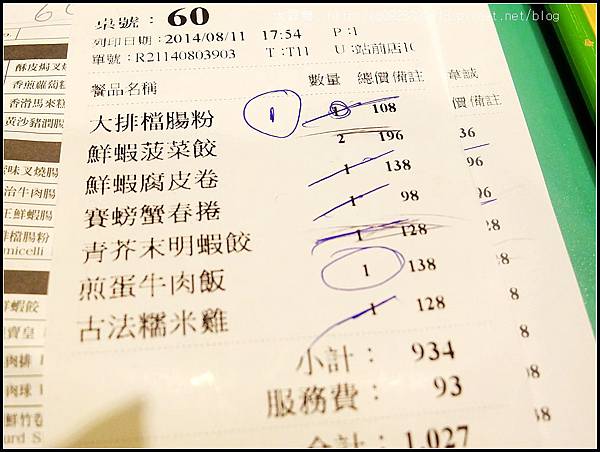 桌號：60
列印日期：2014/08/11 17:54 P：1
單號：R21140803903 T：T11 U：站前店10
餐品名稱 數量 總價 備註
大排檔腸粉 1 108
1
鮮蝦菠菜餃 2 196
鮮蝦腐皮卷 1 138
賽螃蟹春捲 1 98
青芥末明蝦餃 1 128
煎蛋牛肉飯 1 138
古法糯米雞 1 128
小計：934
服務費：93
合計：1,027
章誠
價 備註
36
96
96
酥皮焗叉燒
香煎蘿蔔糕
香滑馬來糕
黃沙豬潤腸
蜜味叉燒腸
治牛肉腸
王鮮蝦腸
排檔腸粉
micelli
鮮蝦餃
賣皇
肉排
肉球
鮮竹卷